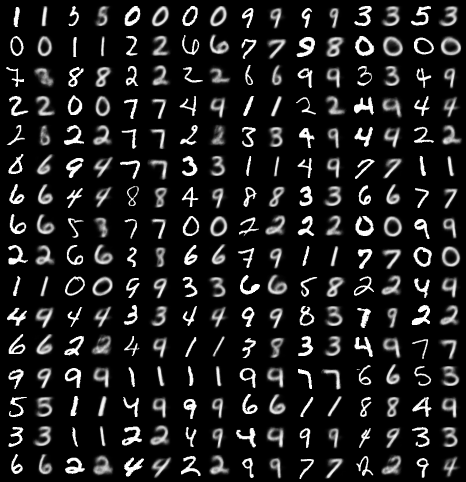 1 1 5 5 0 0 0 0 9 9 9 9 3 3 5 3
0 0 1 1 2 2 6 6 7 7 9 8 0 0 0 0
7 8 8 8 2 2 2 2 6 6 9 9 3 3 4 9
2 2 0 0 7 7 4 9 1 1 2 2 4 9 4 4
2 8 2 2 7 7 2 2 3 3 4 9 4 4 2 2
0 6 9 4 7 7 3 3 1 1 4 9 7 7 1 1
6 6 4 4 8 8 4 9 8 8 3 3 6 6 7 7
6 6 5 3 7 7 0 0 7 2 2 2 0 0 9 9
2 2 6 6 3 8 6 6 7 9 1 1 7 7 0 0
1 1 0 0 9 9 3 3 6 6 5 8 2 2 4 9
4 9 4 4 3 3 4 4 9 9 8 3 7 9 2 2
6 6 2 2 4 9 1 1 3 8 3 3 4 9 7 7
9 9 9 9 1 1 1 1 9 9 7 7 6 6 5 3
5 5 1 1 4 9 9 9 6 6 1 1 8 8 4 9
3 3 1 1 2 2 4 9 4 9 9 9 4 9 3 3
6 6 2 2 4 4 2 2 9 9 7 7 2 2 9 4